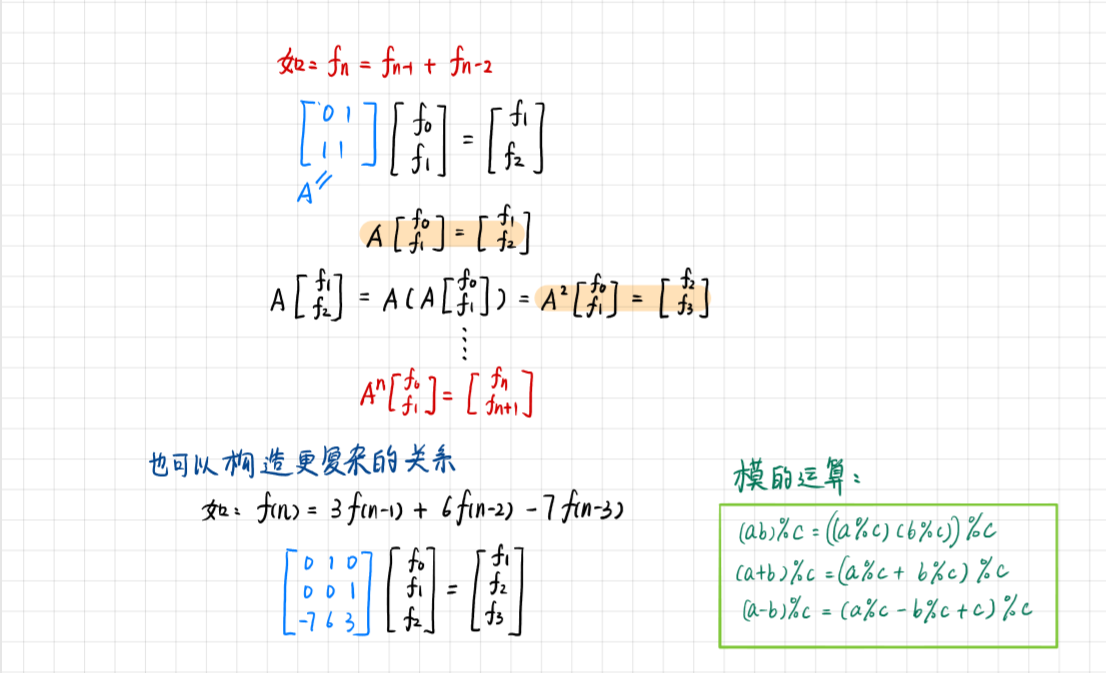 如: fn = fn-1 + fn-2
[0 1; 1 1] [f0; f1] = [f1; f2]
A
A [f0; f1] = [f1; f2]
A [f1; f2] = A(A[f0; f1]) = A² [f0; f1] = [f2; f3]
⋮
Aⁿ [f0; f1] = [fn; fn+1]
也可以构造更复杂的关系
如: f(n) = 3f(n-1) + 6f(n-2) - 7f(n-3)
[0 1 0; 0 0 1; -7 6 3] [f0; f1; f2] = [f1; f2; f3]
模的运算:
(ab)%c = ((a%c)(b%c))%c
(a+b)%c = (a%c + b%c)%c
(a-b)%c = (a%c - b%c + c)%c